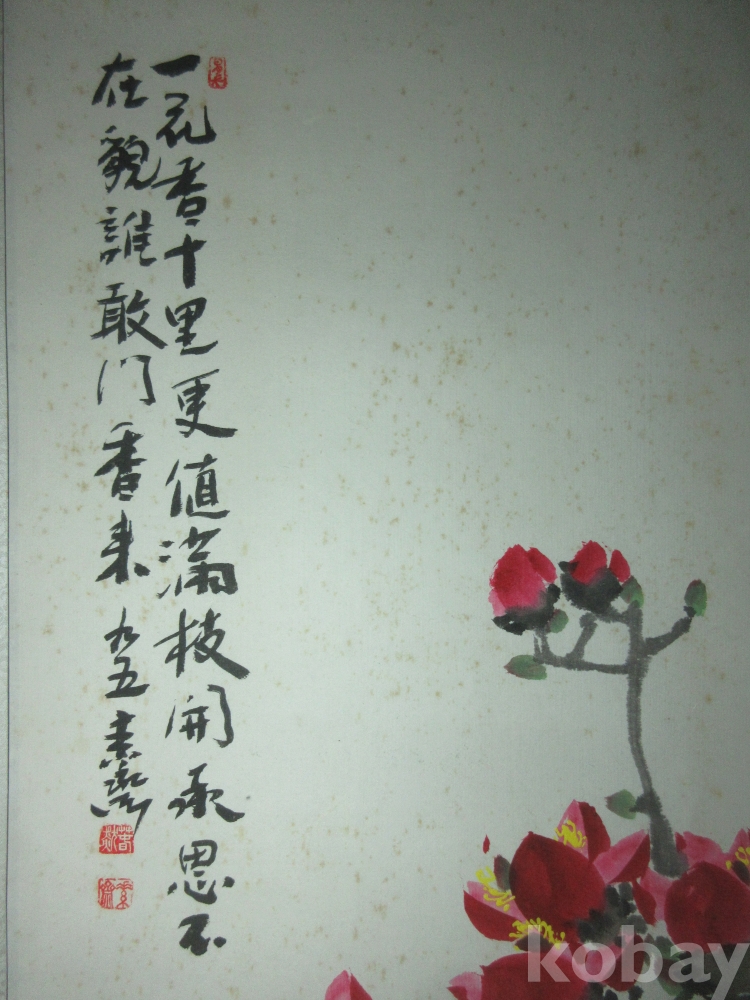 一花香十里更值滿枝開承恩不
在貌誰敢鬥香來 九五 素
kobay